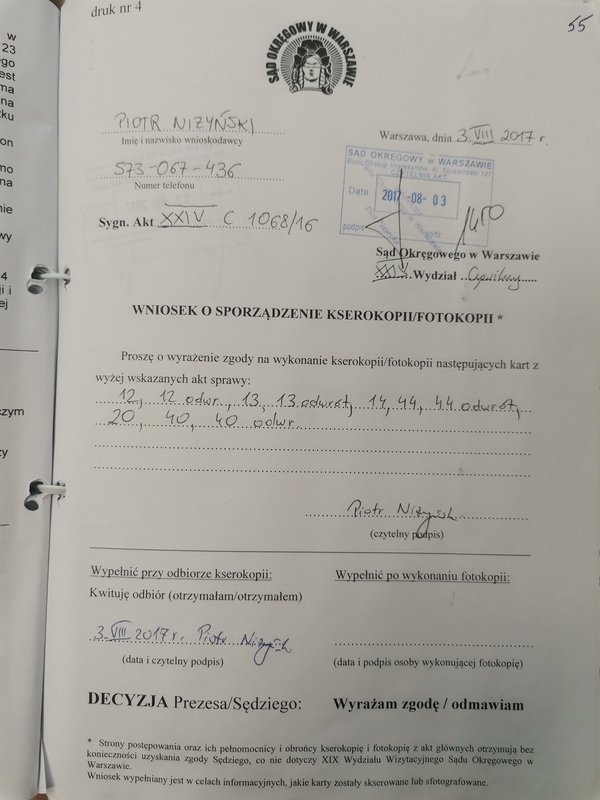 druk nr 4
55
SĄD OKRĘGOWY W WARSZAWIE
PIOTR NIŻYŃSKI
Imię i nazwisko wnioskodawcy
Warszawa, dnia 3 VIII 2017 r.
573-067-436
Numer telefonu
SĄD OKRĘGOWY w WARSZAWIE
CZYTELNIA AKT
Data 2017 -08- 03
podpis
Sygn. Akt XXIV C 1068/16
Sąd Okręgowego w Warszawie
XXIV Wydział Cywilny
WNIOSEK O SPORZĄDZENIE KSEROKOPII/FOTOKOPII *
Proszę o wyrażenie zgody na wykonanie kserokopii/fotokopii następujących kart z
wyżej wskazanych akt sprawy:
12, 12 odwr., 13, 13 odwrót, 14, 44, 44 odwrót,
20, 40, 40 odwr.
Piotr Niżyński
(czytelny podpis)
Wypełnić przy odbiorze kserokopii:
Wypełnić po wykonaniu fotokopii:
Kwituję odbiór (otrzymałam/otrzymałem)
3 VIII 2017 r. Piotr Niżyński
(data i czytelny podpis)
(data i podpis osoby wykonującej fotokopię)
DECYZJA Prezesa/Sędziego:
Wyrażam zgodę / odmawiam
* Strony postępowania oraz ich pełnomocnicy i obrońcy kserokopię i fotokopię z akt głównych otrzymują bez
konieczności uzyskania zgody Sędziego, co nie dotyczy XIX Wydziału Wizytacyjnego Sądu Okręgowego w
Warszawie.
Wniosek wypełniany jest w celach informacyjnych, jakie karty zostały skserowane lub sfotografowane.